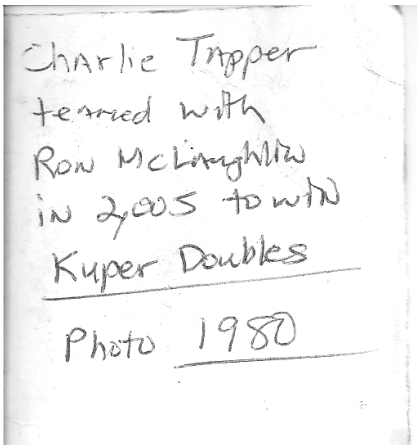 Charlie Tapper
teamed with
Ron McLaughlin
in 2,005 to win
Kuper Doubles
Photo 1980